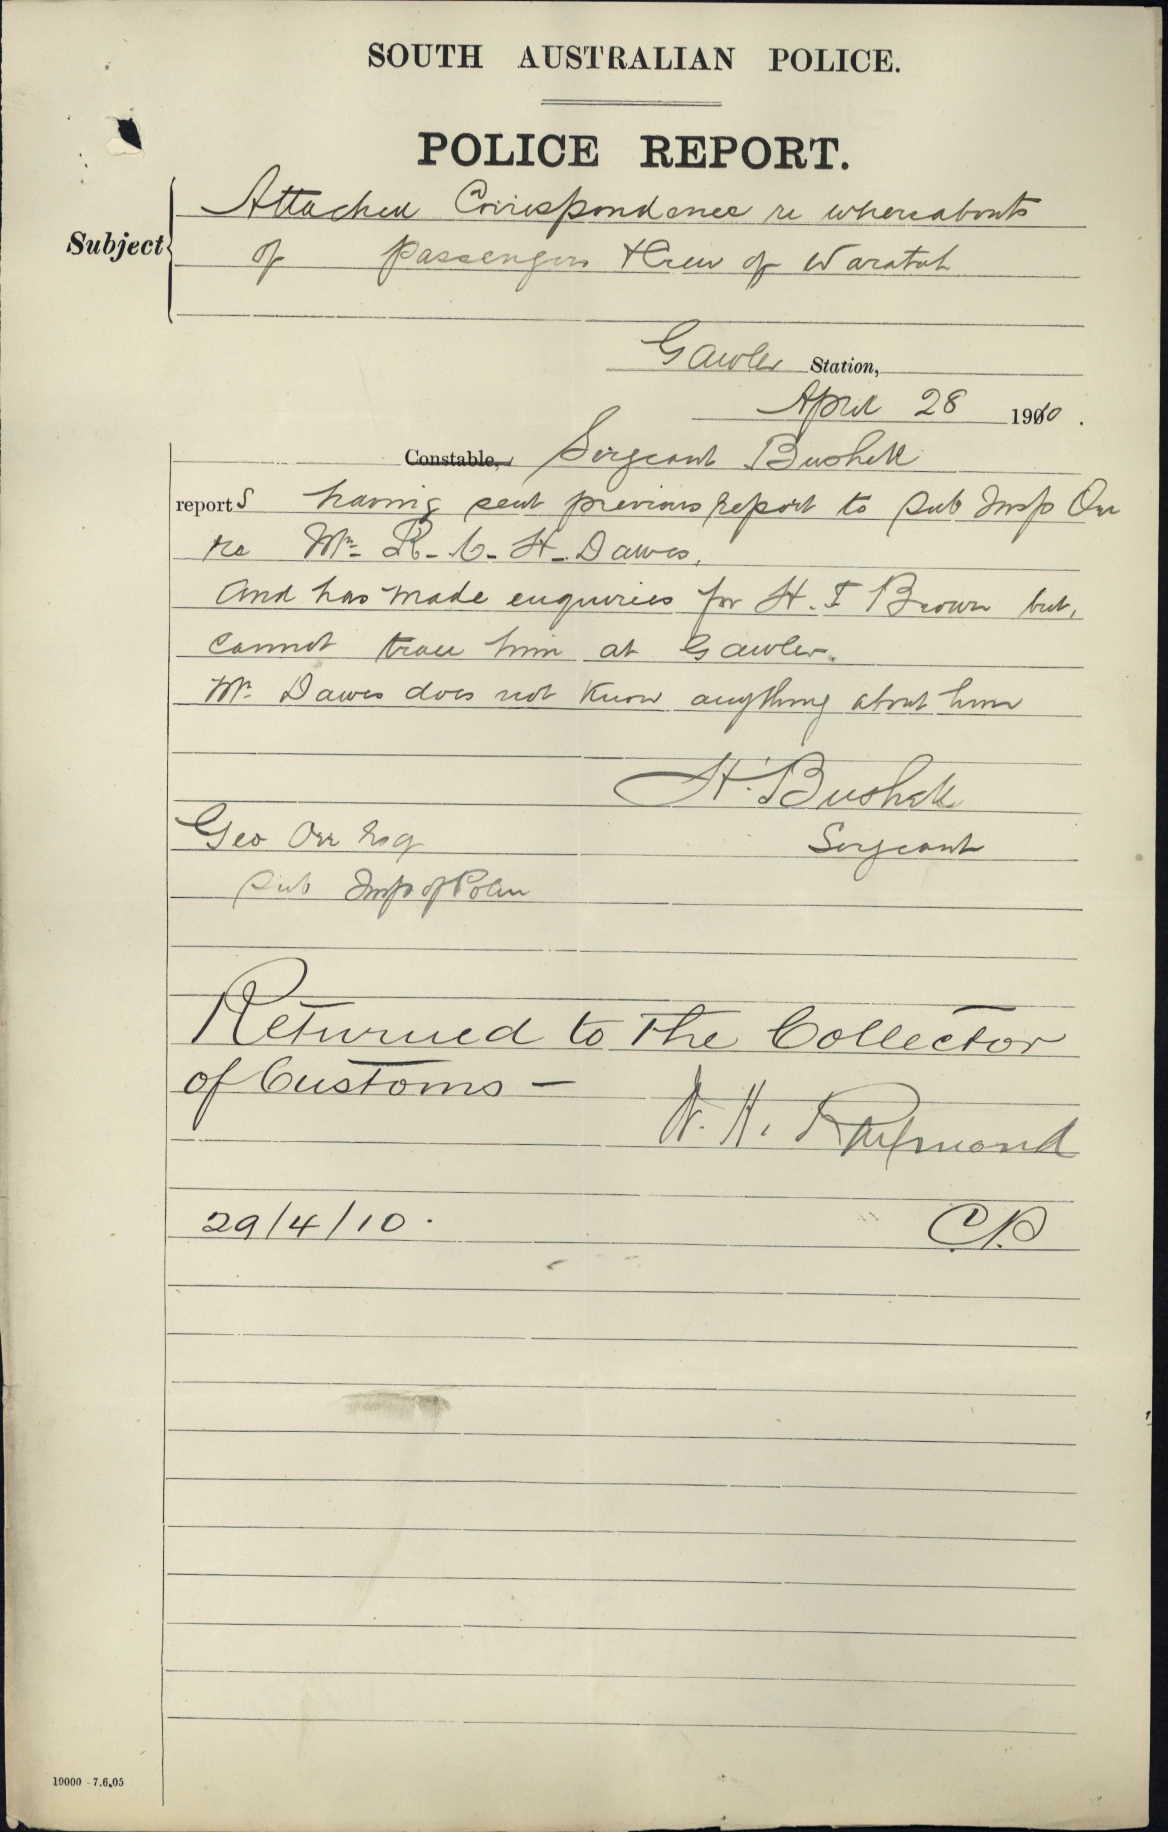 SOUTH AUSTRALIAN POLICE.
POLICE REPORT.
Subject
Attached Correspondence re whereabouts
of passengers & Crew of Waratah
Gawler Station,
April 28 1910.
Constable, Sergeant Bushell
reports having sent previous report to Sub Insp Orr
re Mr. R. C. H. Dawes,
and has made enquiries for H. I Brown but,
cannot trace him at Gawler.
Mr. Dawes does not know anything about him
H. Bushell
Sergeant
Geo Orr Esq
Sub Insp of Police
Returned to The Collector
of Customs —
W. H. Raymond
29/4/10.
C.P.
10000 - 7.6.05